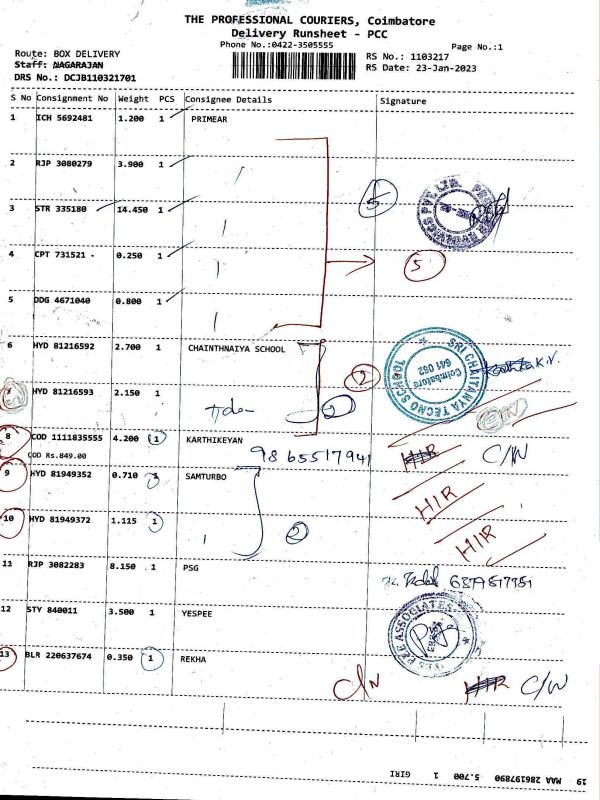 THE PROFESSIONAL COURIERS, Coimbatore
Delivery Runsheet - PCC
Phone No.:0422-3505555
Page No.:1
Route: BOX DELIVERY
Staff: NAGARAJAN
DRS No.: DCJB110321701
RS No.: 1103217
RS Date: 23-Jan-2023
S No Consignment No Weight PCS Consignee Details Signature
1 ICH 5692481 1.200 1 PRIMEAR
2 RJP 3080279 3.900 1
3 STR 335180 14.450 1
5
4 CPT 731521 0.250 1
5
5 DDG 4671040 0.800 1
6 HYD 81216592 2.700 1 CHAINTHNAIYA SCHOOL
2
SRI CHAITANYA TECNO SCHOOL
Coimbatore
641 062
7 HYD 81216593 2.150 1
2
8 COD 1111835555 4.200 1 KARTHIKEYAN
COD Rs.849.00
9865517941
HIR C/W
9 HYD 81949352 0.710 SAMTURBO
HIR
10 HYD 81949372 1.115 1
2
HIR
11 RJP 3082283 8.150 1 PSG
12 STY 840011 3.500 1 YESPEE
YES PEE ASSOCIATES
13 BLR 220637674 0.350 1 REKHA
HIR C/W
19 MAA 286197890 5.700 1 GIRI